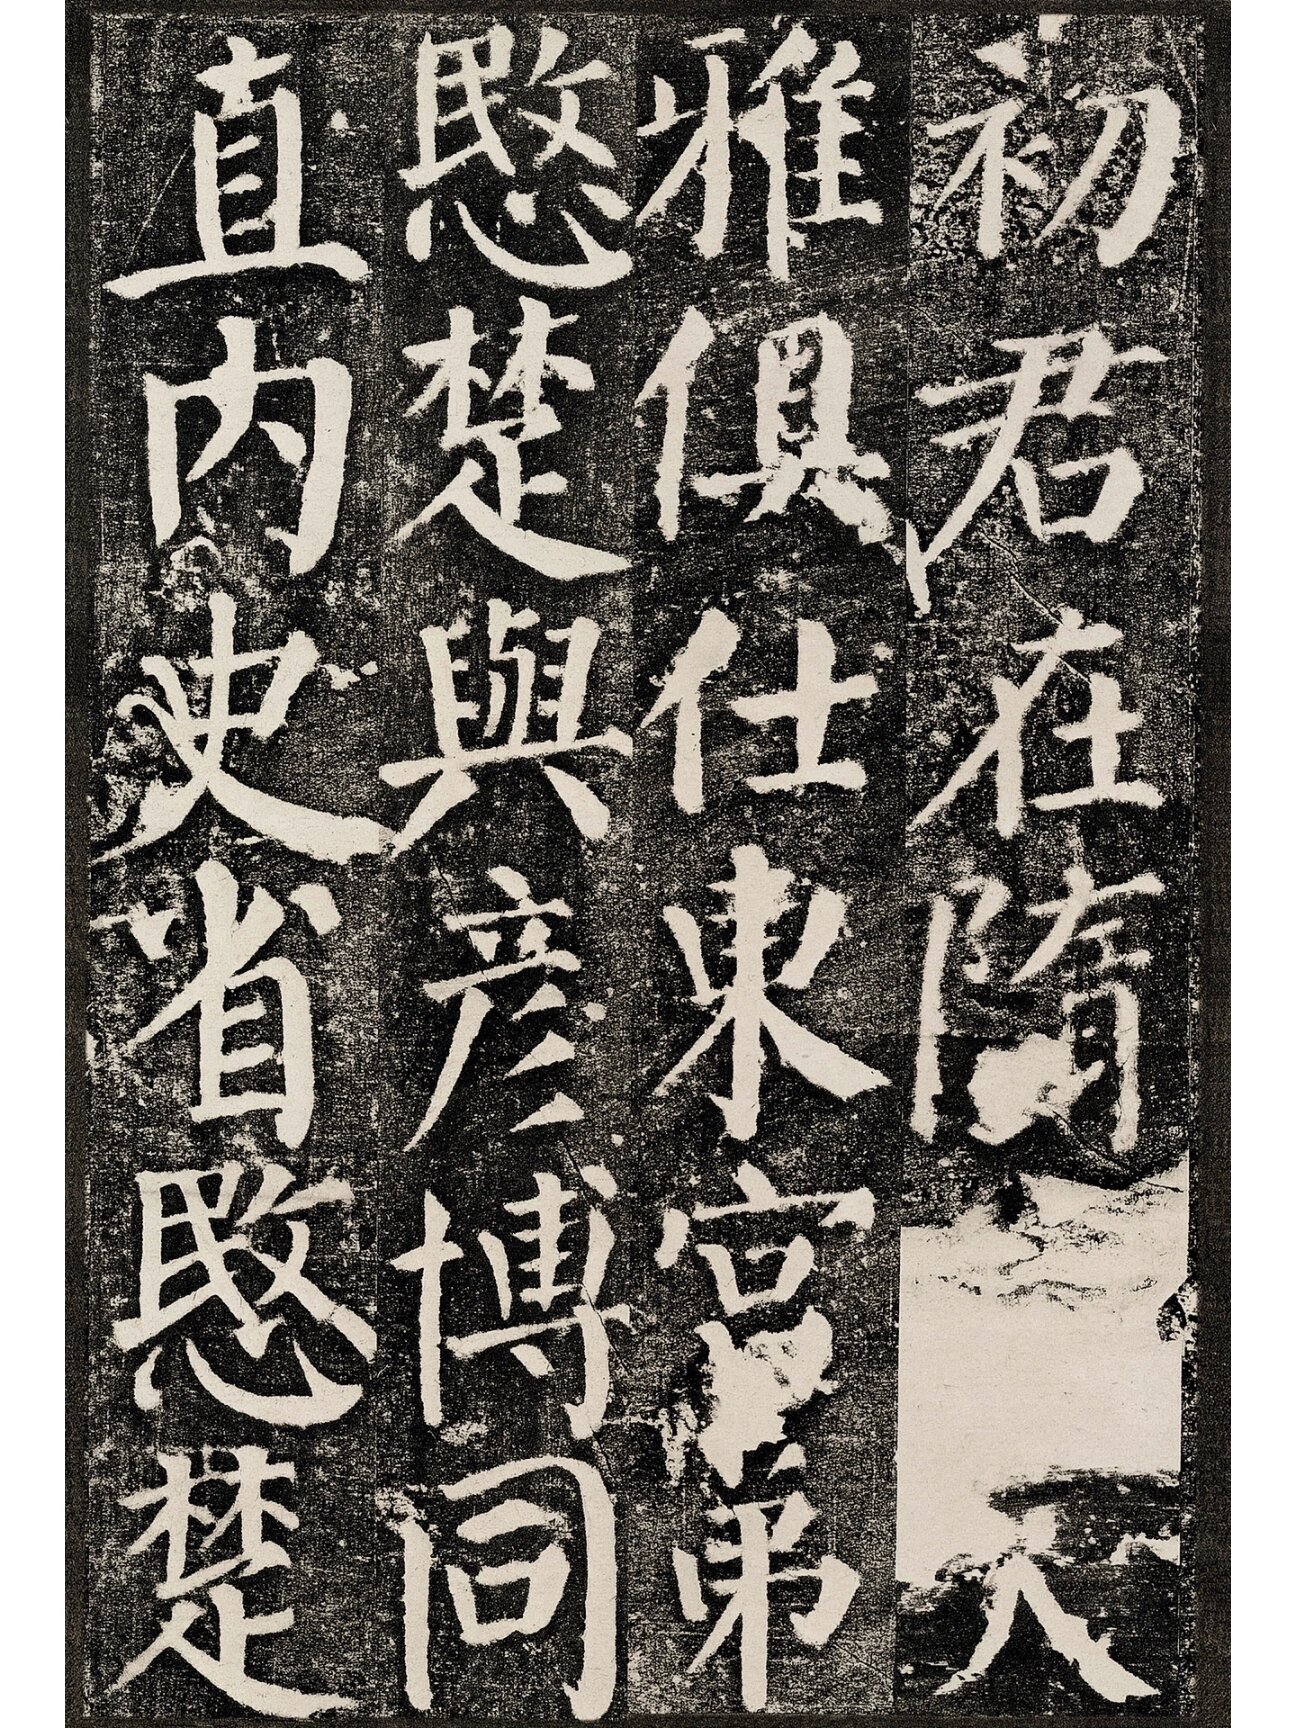 初君在隋大
雅俱仕東宮弟
愍楚與彦博同
直内史省愍楚